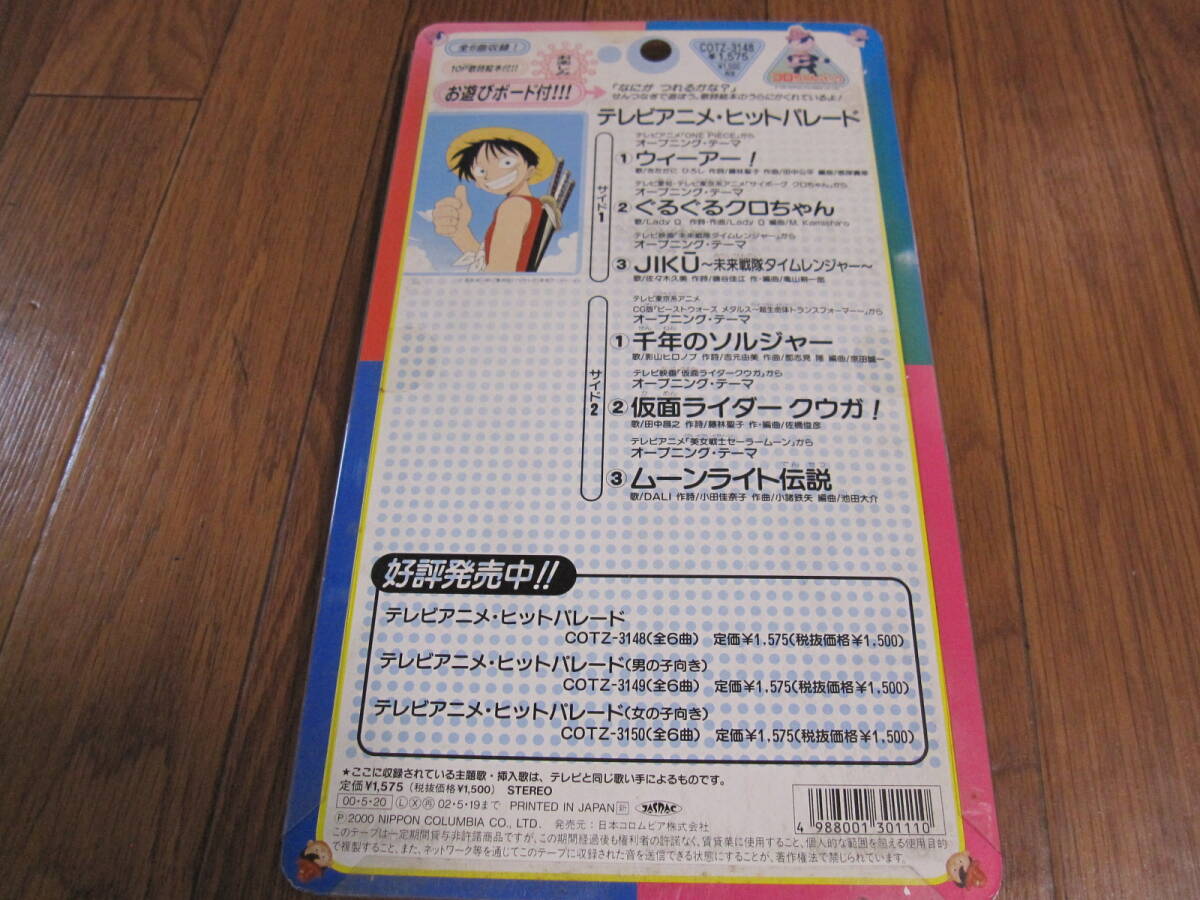 全6曲収録！
10P歌詩絵本付!!
お楽しみ
お遊びボード付!!!
「なにが つれるかな？」
せんつなぎで遊ぼう。歌詩絵本のうらにかくれているよ！
COTZ-3148
¥1,575
コロちゃんパック
テレビアニメ・ヒットパレード
サイド1
テレビアニメ「ONE PIECE」から
オープニング・テーマ
①ウィーアー！
歌/きただに ひろし 作詩/藤林聖子 作曲/田中公平 編曲/根岸貴幸
テレビ愛知・テレビ東京系アニメ「サイボーグ クロちゃん」から
オープニング・テーマ
②ぐるぐるクロちゃん
歌/Lady Q 作詩・作曲/Lady Q 編曲/M. Kamishiro
テレビ映画「未来戦隊タイムレンジャー」から
オープニング・テーマ
③JIKŪ～未来戦隊タイムレンジャー～
歌/佐々木久美 作詩/磯谷佳江 作・編曲/亀山耕一郎
サイド2
テレビ東京系アニメ
CG版「ビーストウォーズ メタルス－超生命体トランスフォーマー－」から
オープニング・テーマ
①千年のソルジャー
歌/影山ヒロノブ 作詩/吉元由美 作曲/都志見 隆 編曲/京田誠一
テレビ映画「仮面ライダークウガ」から
オープニング・テーマ
②仮面ライダー クウガ！
歌/田中昌之 作詩/藤林聖子 作・編曲/佐橋俊彦
テレビアニメ「美少女戦士セーラームーン」から
オープニング・テーマ
③ムーンライト伝説
歌/DALI 作詩/小田佳奈子 作曲/小諸鉄矢 編曲/池田大介
好評発売中!!
テレビアニメ・ヒットパレード
COTZ-3148(全6曲) 定価¥1,575(税抜価格¥1,500)
テレビアニメ・ヒットパレード(男の子向き)
COTZ-3149(全6曲) 定価¥1,575(税抜価格¥1,500)
テレビアニメ・ヒットパレード(女の子向き)
COTZ-3150(全6曲) 定価¥1,575(税抜価格¥1,500)
★ここに収録されている主題歌・挿入歌は、テレビと同じ歌い手によるものです。
定価¥1,575 (税抜価格¥1,500) STEREO
00・5・20 Ⓛ Ⓧ 再 02・5・19まで PRINTED IN JAPAN JASRAC
Ⓟ 2000 NIPPON COLUMBIA CO., LTD. 発売元：日本コロムビア株式会社
4 988001 301110
このテープは一定期間貸与非許諾商品ですが、この期間経過後も権利者の許諾なく、賃貸業に使用すること、個人的な範囲を超える使用目的
で複製すること、また、ネットワーク等を通じてこのテープに収録された音を送信できる状態にすることが、著作権法で禁じられています。